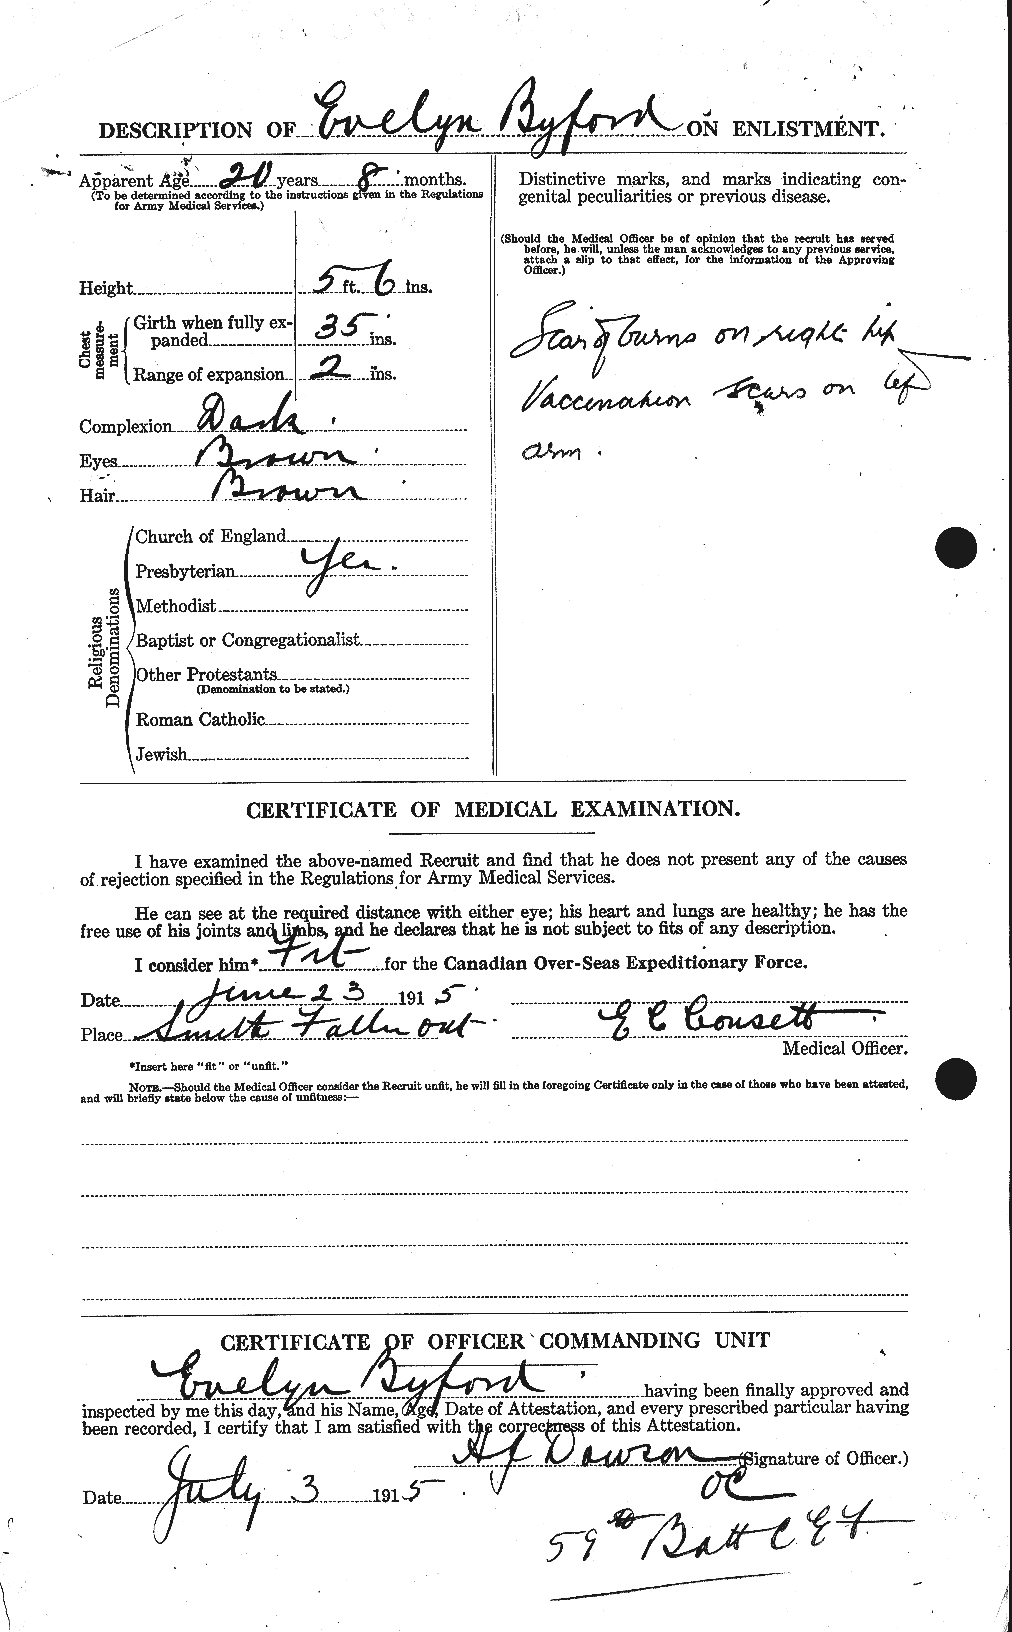 DESCRIPTION OF Evelyn Byford ON ENLISTMENT.
Apparent Age 20 years 8 months.
(To be determined according to the instructions given in the Regulations
for Army Medical Services.)
Height 5 ft. 6 ins.
Chest measure-ment
Girth when fully ex-
panded 35 ins.
Range of expansion 2 ins.
Complexion Dark
Eyes Brown
Hair Brown
Religious Denominations
Church of England
Presbyterian Yes.
Methodist
Baptist or Congregationalist
Other Protestants
(Denomination to be stated.)
Roman Catholic
Jewish
Distinctive marks, and marks indicating con-
genital peculiarities or previous disease.
(Should the Medical Officer be of opinion that the recruit has served
before, he will, unless the man acknowledges to any previous service,
attach a slip to that effect, for the information of the Approving
Officer.)
Scar of burns on right hip
Vaccination scars on left
arm.
CERTIFICATE OF MEDICAL EXAMINATION.
I have examined the above-named Recruit and find that he does not present any of the causes
of rejection specified in the Regulations for Army Medical Services.
He can see at the required distance with either eye; his heart and lungs are healthy; he has the
free use of his joints and limbs, and he declares that he is not subject to fits of any description.
I consider him* Fit for the Canadian Over-Seas Expeditionary Force.
Date June 23 1915
Place Smith Falls Ont. E C Consett
Medical Officer.
*Insert here "fit" or "unfit."
NOTE.—Should the Medical Officer consider the Recruit unfit, he will fill in the foregoing Certificate only in the case of those who have been attested,
and will briefly state below the cause of unfitness:—
CERTIFICATE OF OFFICER COMMANDING UNIT
Evelyn Byford having been finally approved and
inspected by me this day, and his Name, Age, Date of Attestation, and every prescribed particular having
been recorded, I certify that I am satisfied with the correctness of this Attestation.
HJ Dawson (Signature of Officer.)
OC
Date July 3 1915
59th Batt C E F